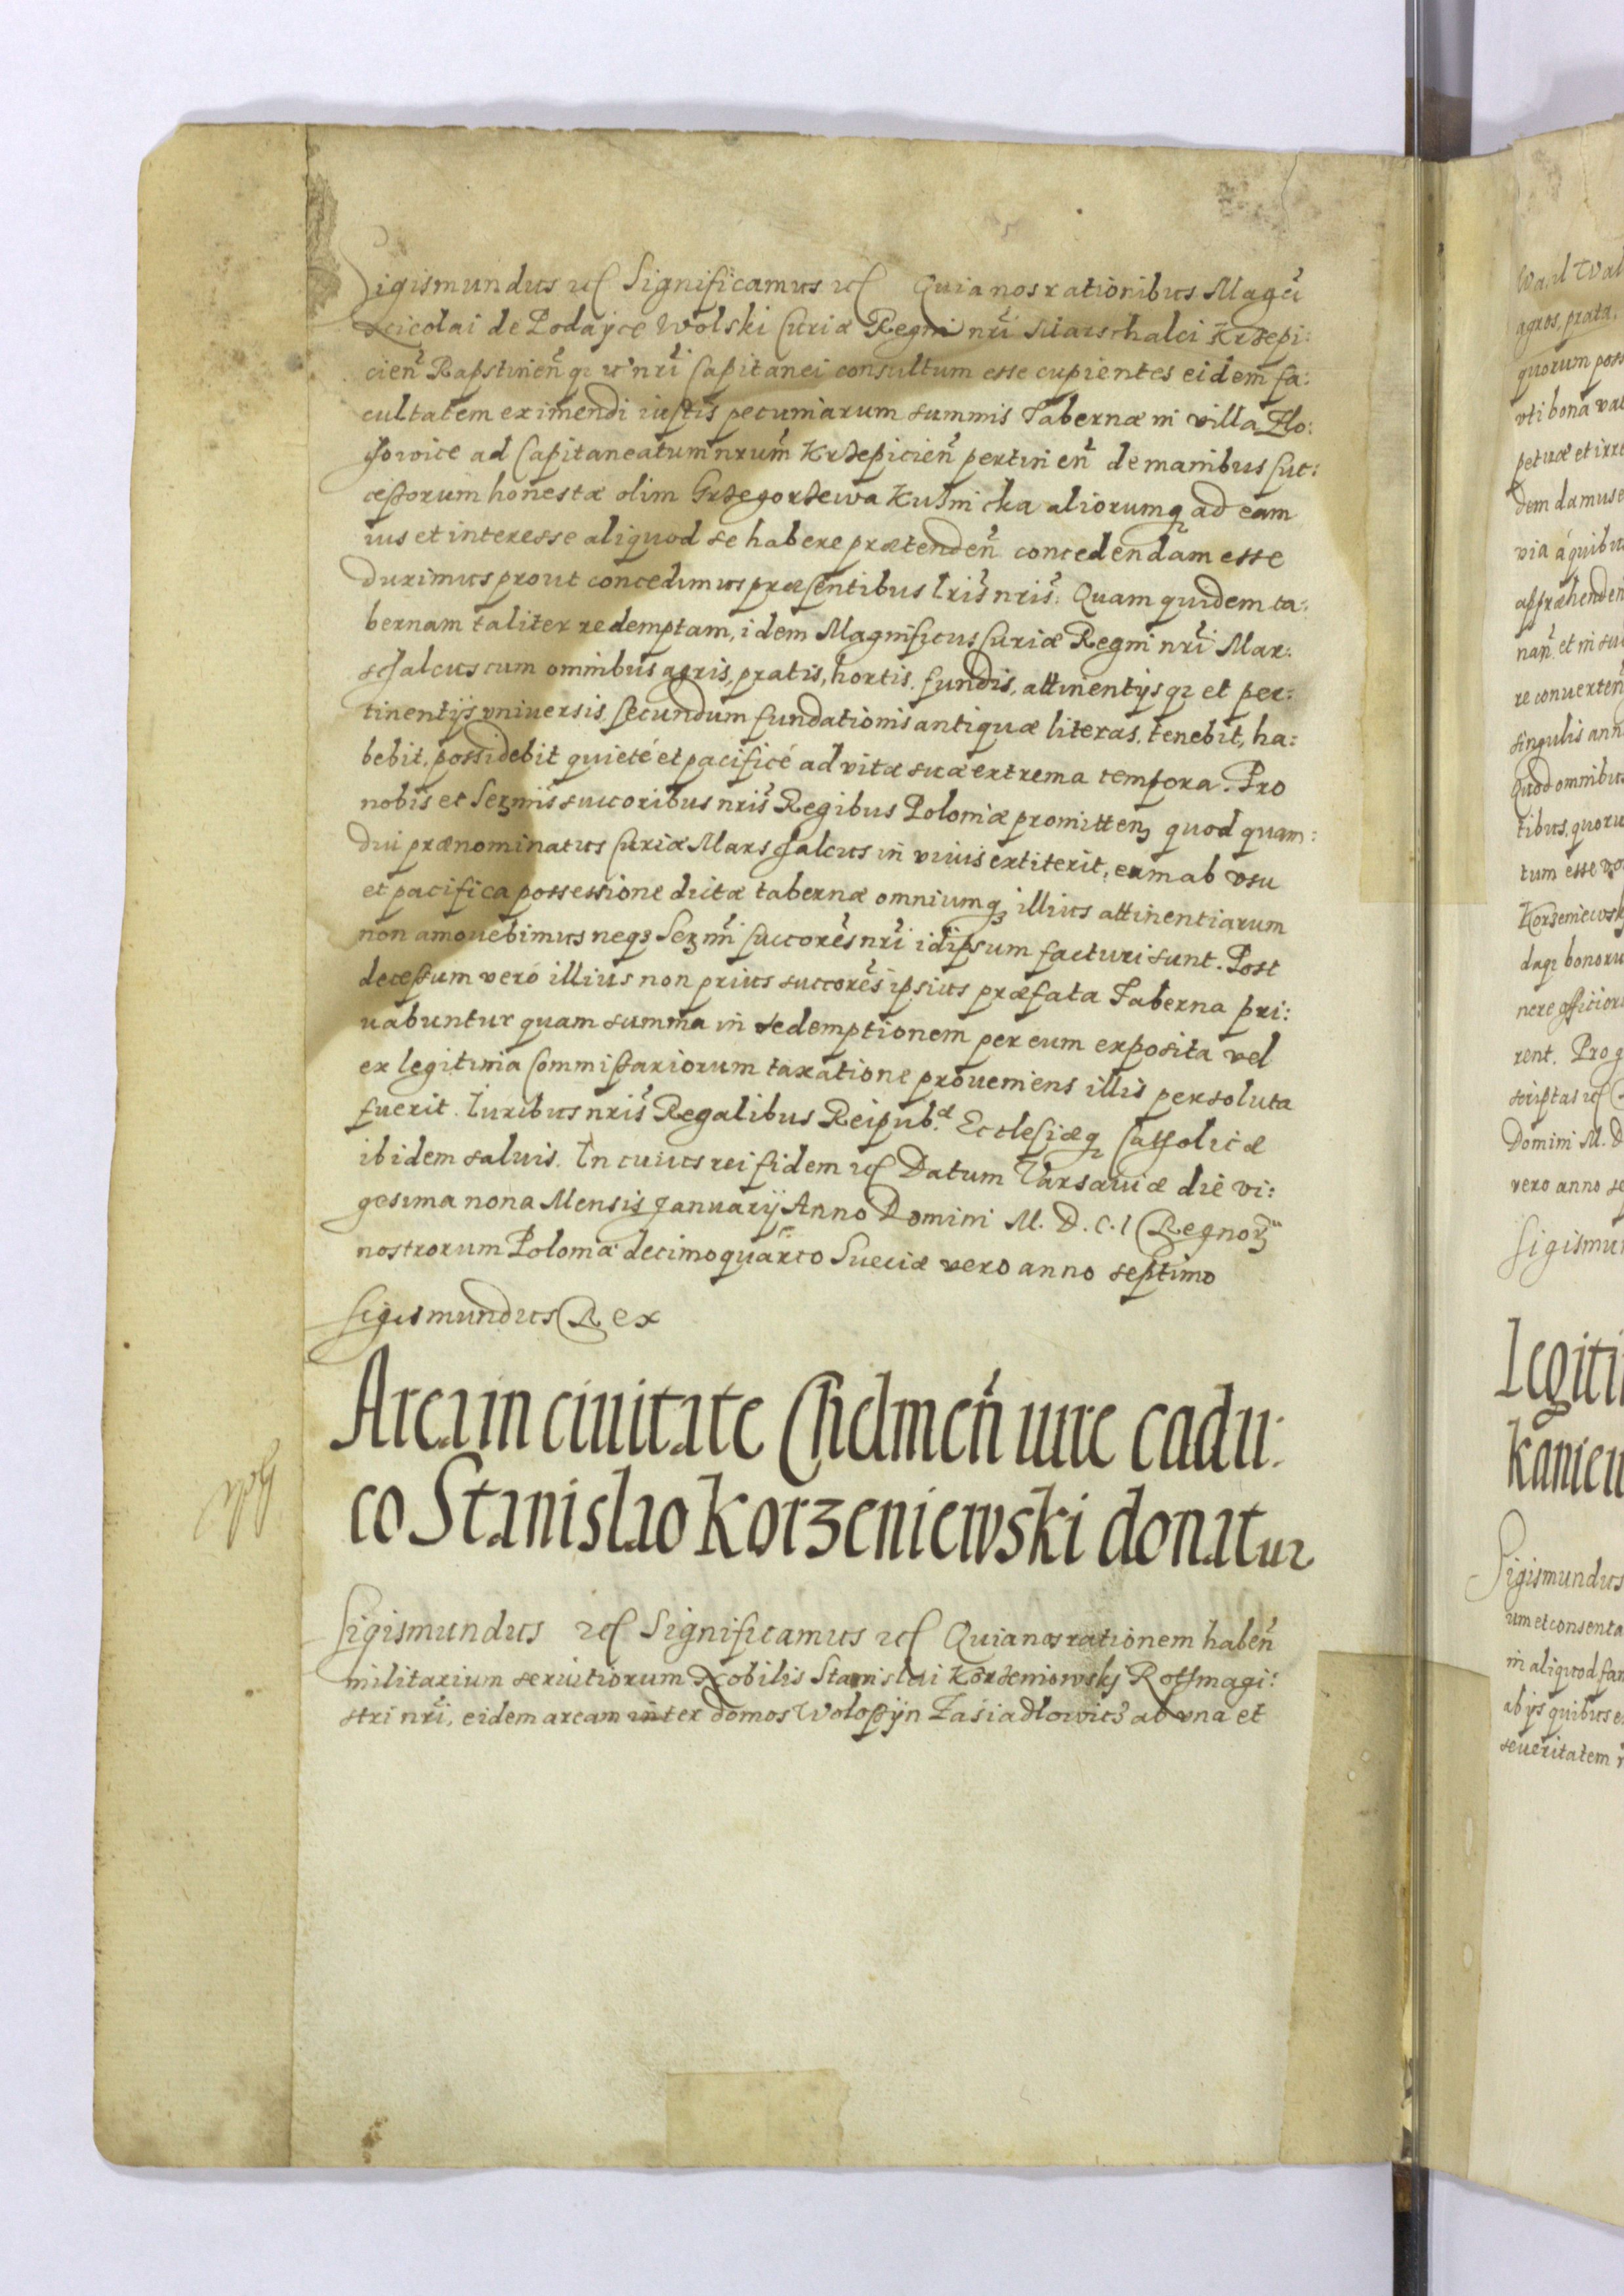 Sigismundus etc Significamus etc Quia nos rationibus Magci
Nicolai de Podayce Wolski Curiæ Regni nri Marschalci Krzepi:
cien Rapstinenq; etc nri Capitanei consultum esse cupientes eidem fa:
cultatem eximendi iustis pecuniarum summis Tabernæ in villa Zlo:
chowice ad Capitaneatum nrum Krzepicien pertinen de manibus suc:
cessorum honestæ olim Grzegorzewa Kusnicka aliorumq ad eam
ius et interesse aliquod se habere prætenden concedendam esse
duximus prout concedimus præsentibus lris nris. Quam quidem ta:
bernam taliter redemptam, idem Magnificus Curiæ Regni nri Mar:
schalcus cum omnibus agris, pratis, hortis, fundis, attinentijsq; et per:
tinentijs vniuersis, secundum fundationis antiquæ literas, tenebit, ha:
bebit, possidebit quieté et pacificé ad vitæ suæ extrema tempora. Pro
nobis et Sermis succoribus nris Regibus Poloniæ promitten, quod quam:
diu prænominatus Curiæ Marschalcus in viuis extiterit, eum ab vsu
et pacifica possessione dictæ tabernæ omniumq; illius attinentiarum
non amouebimus neq; Sermi succores nri idipsum facturi sunt. Post
decessum vero illius non prius succores ipsius præfata Taberna pri:
uabuntur quam summa in redemptionem per eum exposita vel
ex legitima Commissariorum taxatione proueniens illis persoluta
fuerit. Iuribus nris Regalibus Reipub:æ Ecclesiæq; Catholicæ
ibidem saluis. In cuius rei fidem etc Datum Varsauiæ die vi:
gesima nona Mensis Januarij Anno Domini M. D. C. I Regnorum
nostrorum Poloniæ decimoquarto Sueciæ vero anno septimo
Sigismundus Rex
Area in ciuitate Chelmen iure cadu:
co Stanislao Korzeniewski donatur
Sigismundus etc Significamus etc Quia nos rationem haben
militarium seruitiorum Nobilis Stanislai Korzeniowskj Rothmagi:
stri nri, eidem aream inter domos Wolossyn Zasiadlowicz ab vna et